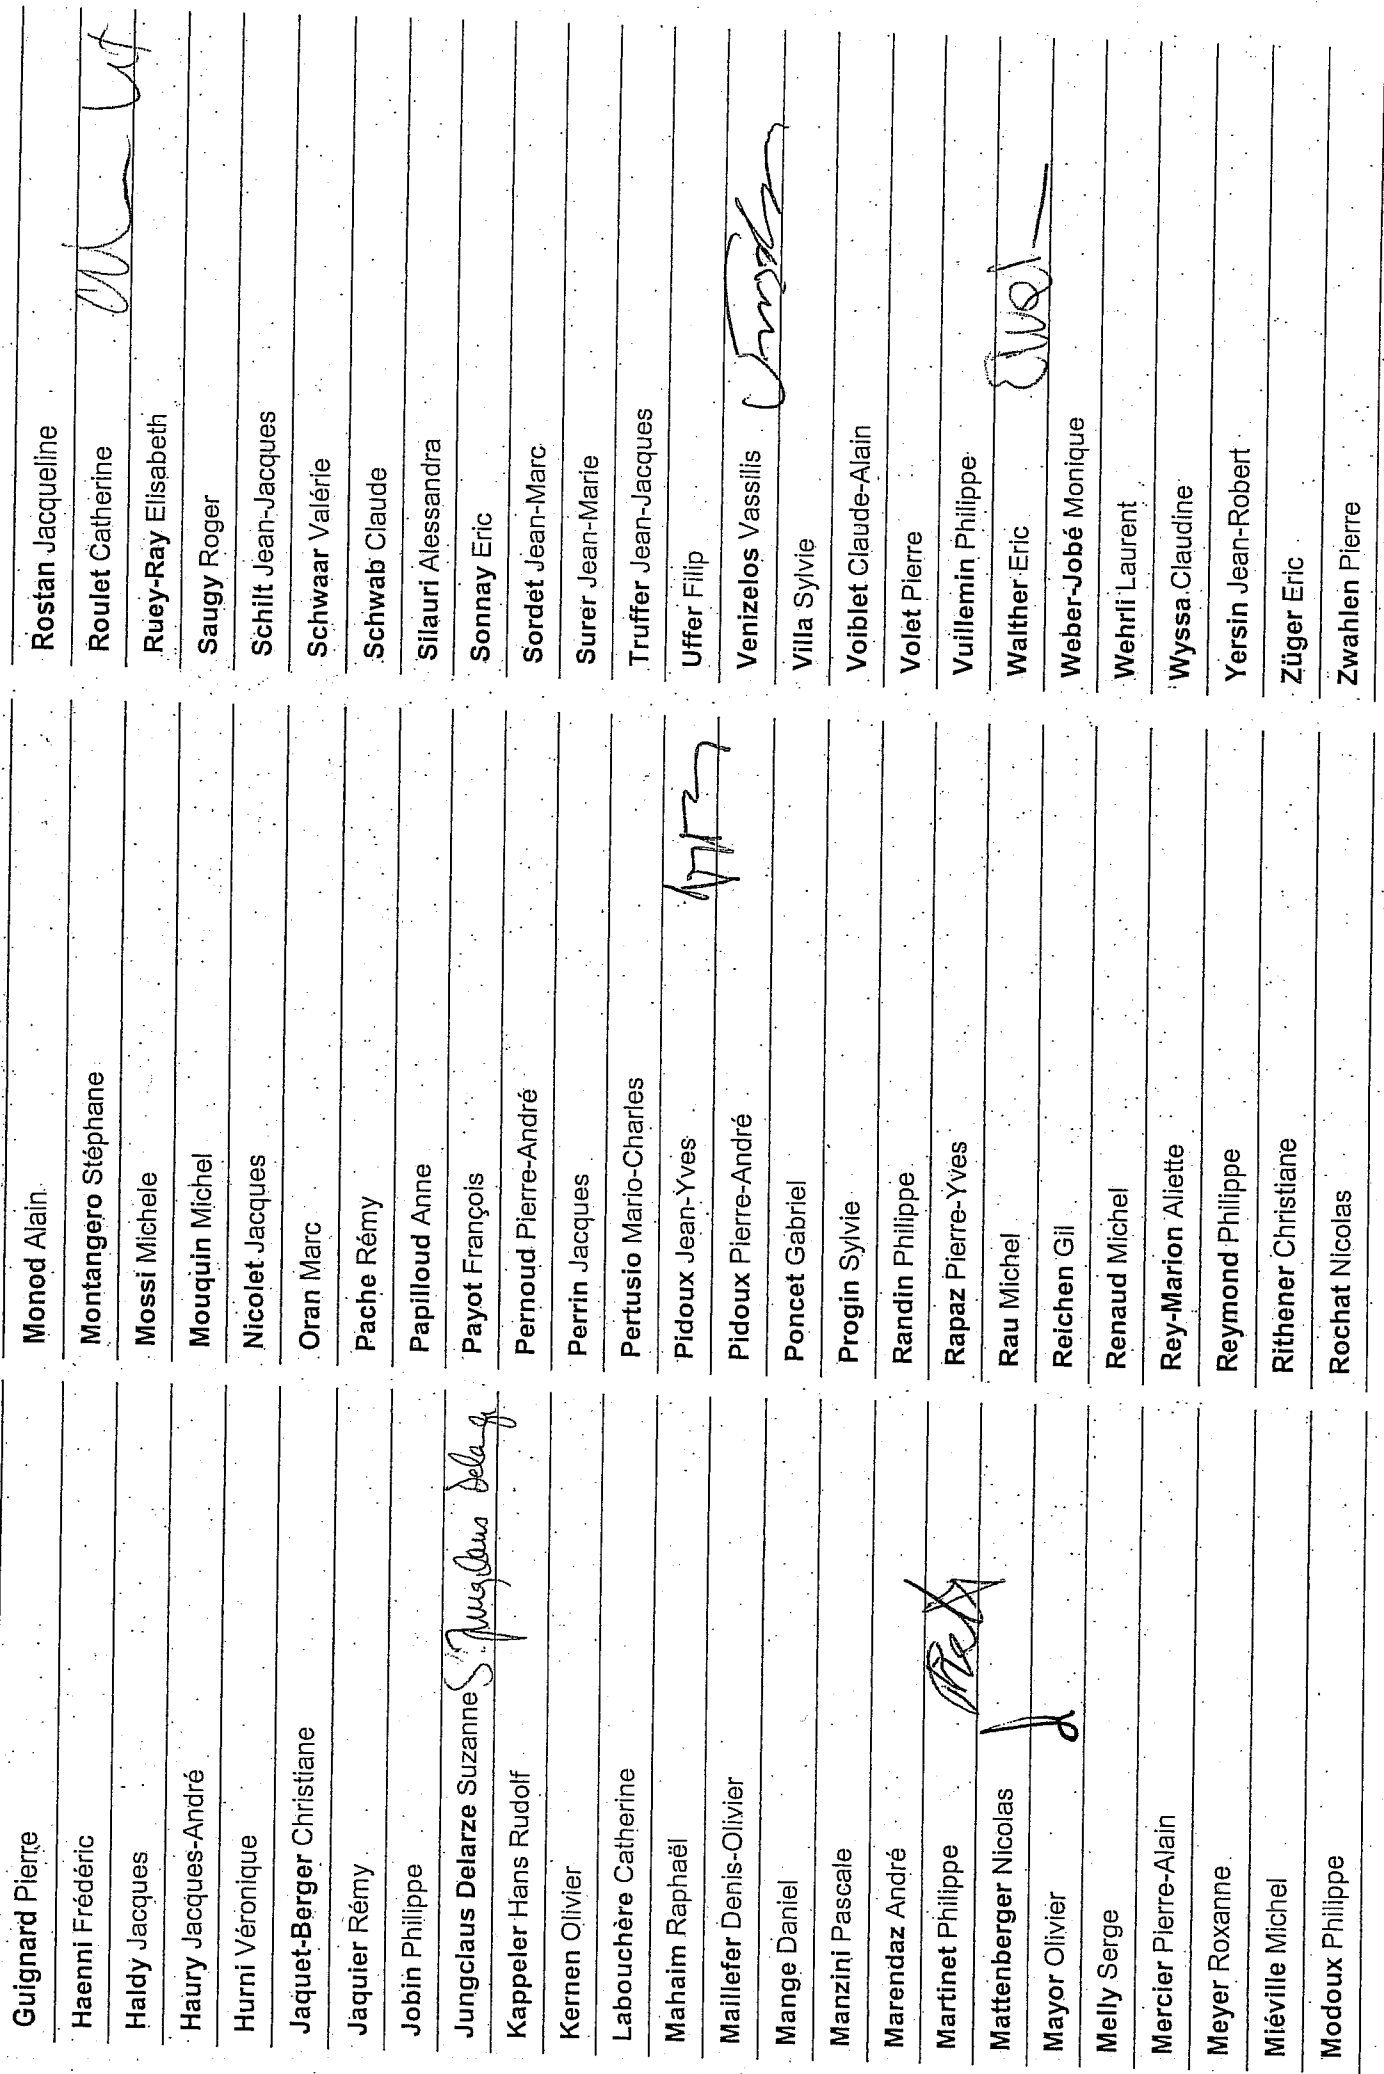 Guignard Pierre
Haenni Frédéric
Haldy Jacques
Haury Jacques-André
Hurni Véronique
Jaquet-Berger Christiane
Jaquier Rémy
Jobin Philippe
Jungclaus Delarze Suzanne S. Jungclaus Delarze
Kappeler Hans Rudolf
Kernen Olivier
Labouchère Catherine
Mahaim Raphaël
Maillefer Denis-Olivier
Mange Daniel
Manzini Pascale
Marendaz André
Martinet Philippe
Mattenberger Nicolas
Mayor Olivier
Melly Serge
Mercier Pierre-Alain
Meyer Roxanne
Miéville Michel
Modoux Philippe
Monod Alain
Montangero Stéphane
Mossi Michele
Mouquin Michel
Nicolet Jacques
Oran Marc
Pache Rémy
Papilloud Anne
Payot François
Pernoud Pierre-André
Perrin Jacques
Pertusio Mario-Charles
Pidoux Jean-Yves
Pidoux Pierre-André
Poncet Gabriel
Progin Sylvie
Randin Philippe
Rapaz Pierre-Yves
Rau Michel
Reichen Gil
Renaud Michel
Rey-Marion Aliette
Reymond Philippe
Rithener Christiane
Rochat Nicolas
Rostan Jacqueline
Roulet Catherine
Ruey-Ray Elisabeth
Saugy Roger
Schilt Jean-Jacques
Schwaar Valérie
Schwab Claude
Silauri Alessandra
Sonnay Eric
Sordet Jean-Marc
Surer Jean-Marie
Truffer Jean-Jacques
Uffer Filip
Venizelos Vassilis
Villa Sylvie
Voiblet Claude-Alain
Volet Pierre
Vuillemin Philippe
Walther Eric
Weber-Jobé Monique
Wehrli Laurent
Wyssa Claudine
Yersin Jean-Robert
Züger Eric
Zwahlen Pierre